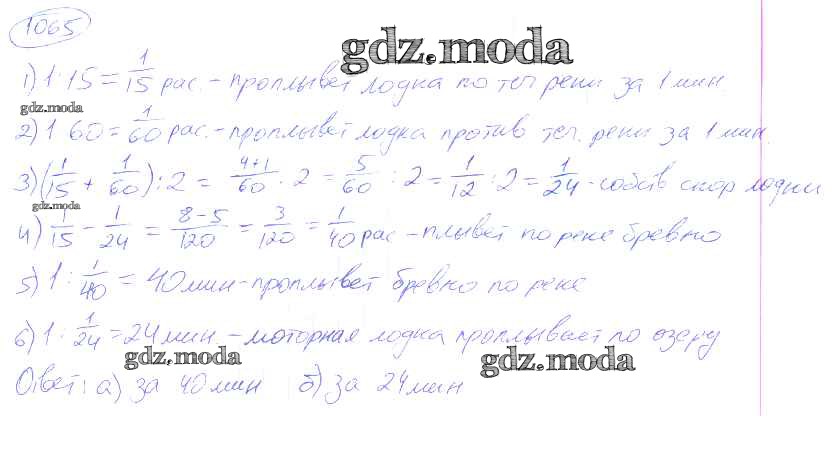 1065
gdz.moda
1) 1:15 = 1/15 рас. - проплывет лодка по теч реки за 1 мин.
gdz.moda
2) 1 60 = 1/60 рас. - проплывет лодка против теч. реки за 1 мин.
3) (1/15 + 1/60) : 2 = 4+1/60 : 2 = 5/60 : 2 = 1/12 : 2 = 1/24 - собств скор лодки
gdz.moda
4) 1/15 - 1/24 = 8-5/120 = 3/120 = 1/40 рас - плывет по реке бревно
5) 1 : 1/40 = 40 мин - проплывет бревно по реке
6) 1 : 1/24 = 24 мин - моторная лодка проплывает по озеру
gdz.moda
gdz.moda
Ответ: а) за 40 мин б) за 24 мин